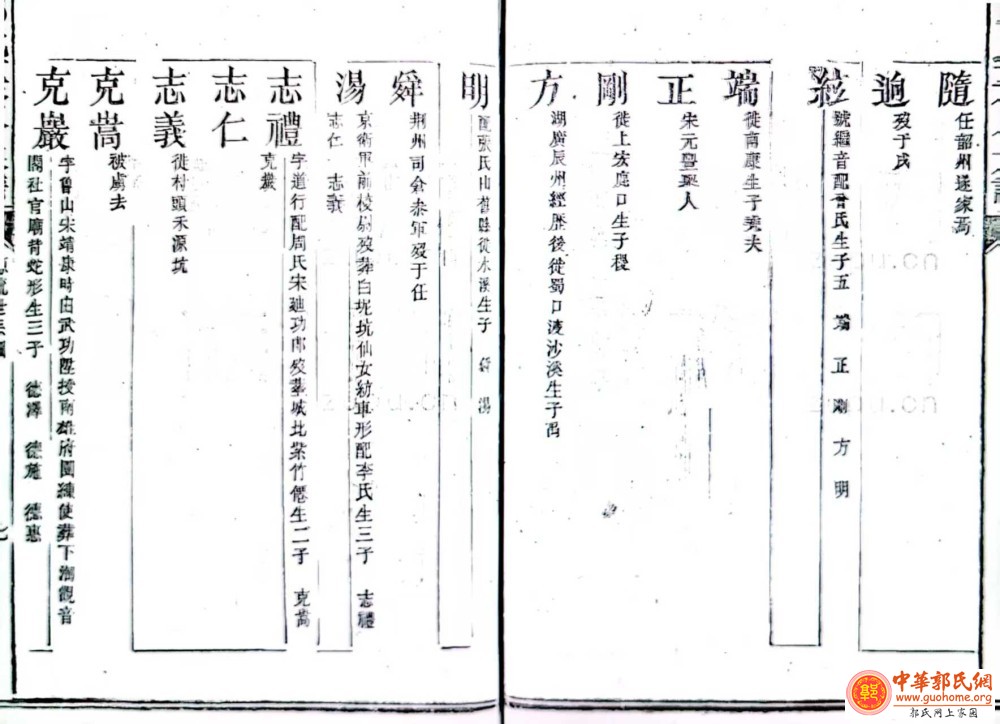 隨
任韶州遂家焉
逈
歿于戌
紘
號繼音配曾氏生子五 端 正 剛 方 明
端
徙南康生子堯夫
正
宋元豐興人
剛
徙上宏鹿口生子稷
方
湖廣辰州經歷後徙蜀口淩沙溪生子禹
明
配張氏山舊縣徙水溪生子 舜 湯
舜
荆州司倉叅軍歿于任
湯
京衛軍前校尉歿葬白坭坑仙女紡車形配李氏生三子 志禮
志仁 志義
志禮
字道行配周氏宋廸功郎歿葬城北紫竹僊生二子 克嵩
克巖
志仁
志義
徙村頭禾源坑
克嵩
被虜去
克巖
字魯山宋靖康時由武功陞授南雄府團練使葬下潮觀音
閣社官廟背蛇形生三子 德澤 德施 德惠
中華郭氏網
www.guohome.org
郭氏网上家园